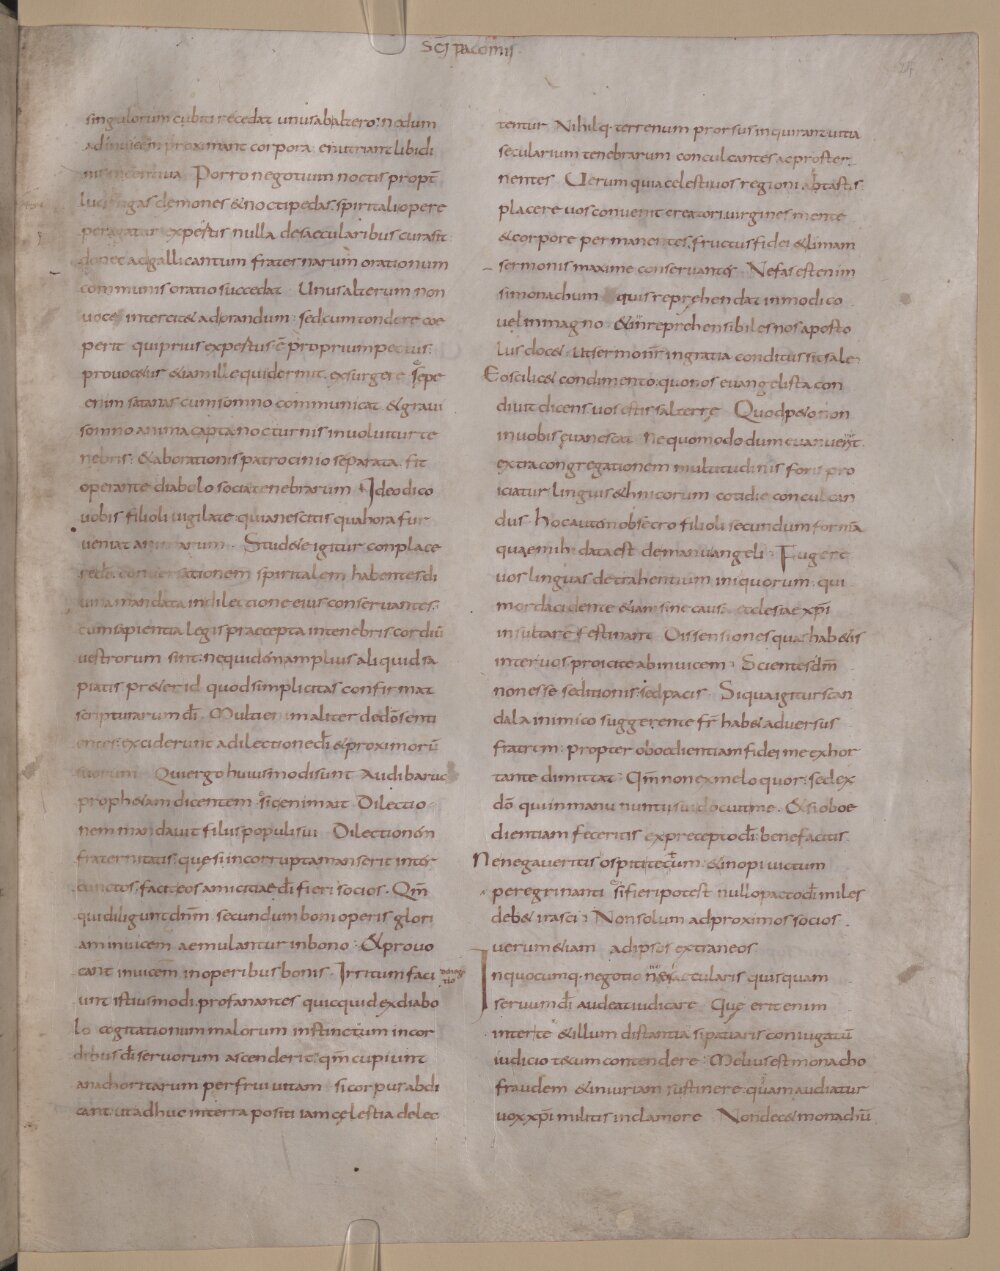 SCI pacomii
27
singulorum cubiti recedat unus ab altero. ne dum
ad inuicem proximant corpora. enutriant libidi
nis incentiua Porro negotium noctis propt̄
lucifugas demones & noctipedas. spiritali opere
peragatur. expertis nulla de saecularibus cura sit
donec ad galli cantum fraternarum orationum
communis oratio succedat Unus alterum non
uoce intercitet ad orandum. sed cum tondere coe
perit qui prius expertus ē proprium pectus.
prouocet eius etiam ille qui dormit. exsurgere sepe
enim satanas cum somno communicat & graui
somno anima capta nocturnis inuoluitur te
nebris. & ab orationis patrocinio separata. fit
operante diabolo socia tenebrarum Ideo dico
uobis filioli uigilate. quia nescitis qua hora fur
ueniat Studete igitur conplace
re deo conuersationem spiritalem habentes di
uina mandata in dilectione eius conseruantes.
cum sapientia legis praecepta in tenebris cordiū
uestrorum sint. ne quid ōn amplius aliquid sa
piatis preter id quod simplicitas confirmat
scripturarum dī. Multi enim aliter de dō senti
entes. exciderunt a dilectione dī & proximorū
suorum Qui ergo huiusmodi sunt Audi baruc
prophetam dicentem sic enim ait Dilectio
nem mandauit filius populi sui Dilectionēn
fraternitatis. que si incorrupta manserit inter
cunctos. facit eos amicitiae dī fieri socios. Qm̄
qui diligunt dnm̄ secundum boni operis glori
am inuicem aemulantur in bono. & prouo
cant inuicem in operibus bonis. Irritum faci
unt istiusmodi. profanantes quicquid ex diabo
lo cogitationum malorum instinctum in cor
dibus dī seruorum ascenderit. qm̄ cupiunt
anachoritarum perfrui uitam si corpus abdi
cant. ut adhuc in terra positi iam celestia delec
tentur. Nihilq. terrenum prorsus inquirant uitia
secularium tenebrarum conculcantes ac proster
nentes Uerum quia celestiuos regioni aptastis.
placere uos conuenit creatori. uirgines mente
& corpore permanentes. fructus fidei & limam
sermonis maxime conseruantes. Nefas est enim
si monachum quis reprehendat in modico
uel in magno. & inreprehensibiles nos aposto
lus docet. ut sermo nr̄ in gratia conditus sit sale
Eo scilicet condimento. quo nos euangelista con
diuit dicens. uos estis sal terre Quod petotion
in uobis euanescat. ne quomodo dum euanuerit.
extra congregationem multitudinis foris pro
iciatur. linguis ethnicorum cotidie conculcan
dus. Hoc autem obsecro filioli secundum formā
quae mihi data est de manu angeli. Fugere
uos linguas detrahentium iniquorum. qui
mordaci dente etiam sine causa ecclesiae xp̄i
insultare festinant. Dissensiones quas habetis
inter uos proicite ab inuicem. Scientes dm̄
non esse seditionis. sed pacis. Si qua igitur scan
dala inimico suggerente fr̄ habet aduersus
fratrem. propter oboedientiam fidei me exhor
tante dimittat. Qm̄ non ex me loquor. sed ex
dō. qui in manu nuntii sui docuit me. & si oboe
dientiam feceritis ex precepto dī. bene facitis
Ne negaueritis ospiti tectum. & inopi uictum
peregrinanti si fieri potest nullo pacto dī miles
debet irasci. Non solum ad proximos socios
uerum etiam ad ipsos extraneos
In quocumq. negotio ne saecularis quisquam
seruum dī audeat iudicare Que erit enim
inter te & illum distantia si patiaris coniugatū
iudicio tecum contendere. Melius est monacho
fraudem & iniuriam sustinere. quam audiatur
uox xp̄i militis in clamore Non decet monachū